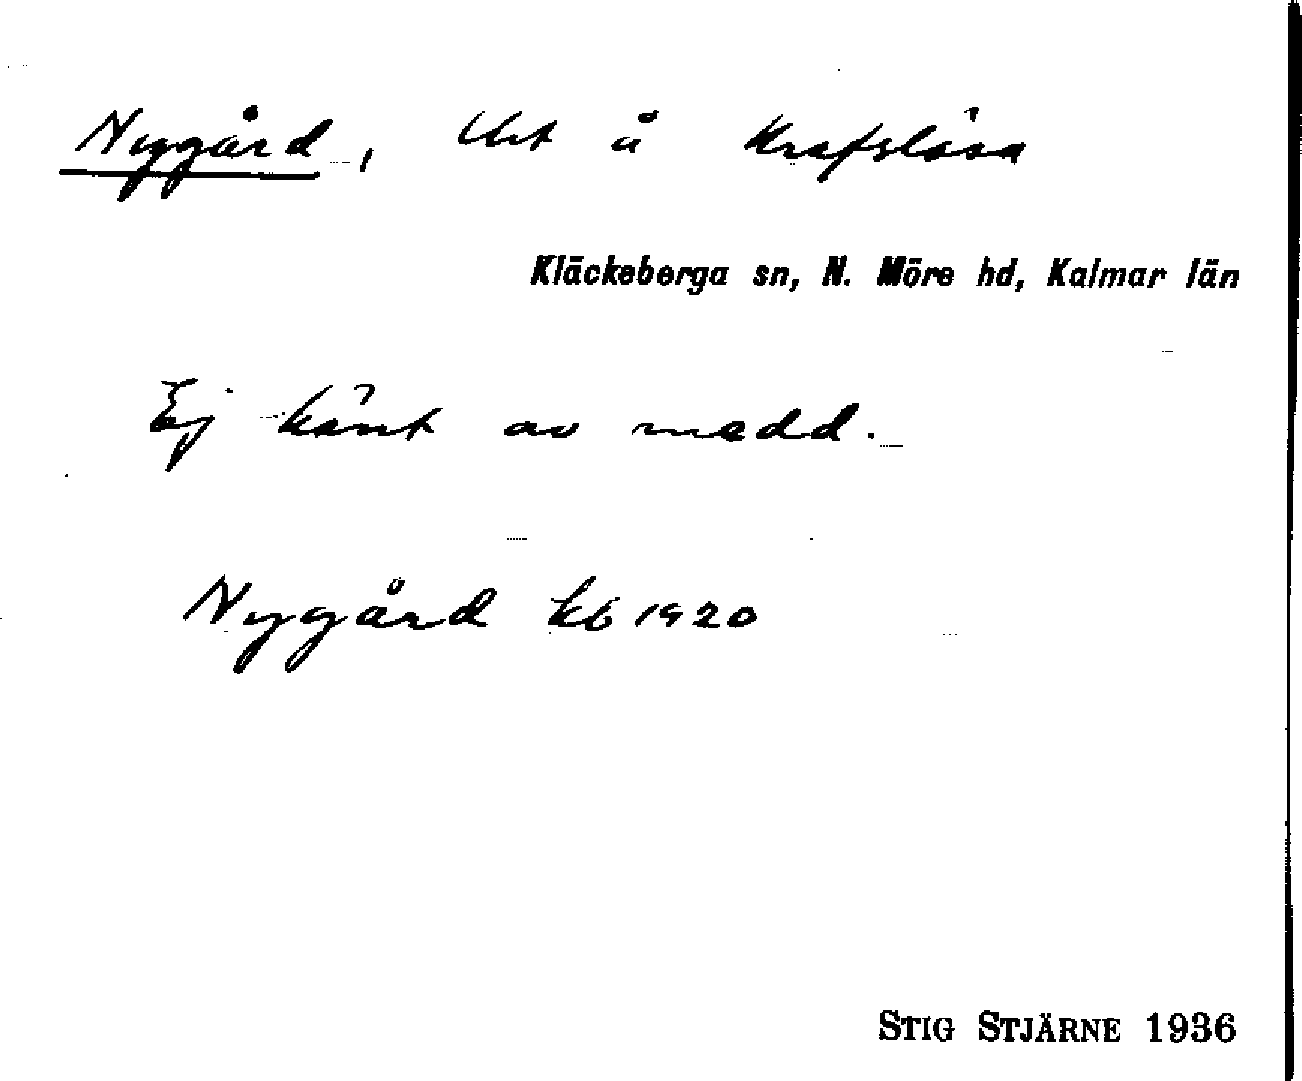 Nygård, lht å Krafslösa
Kläckeberga sn, N. Möre hd, Kalmar län
Ej känt av medd.
Nygård kb 1920
STIG STJÄRNE 1936